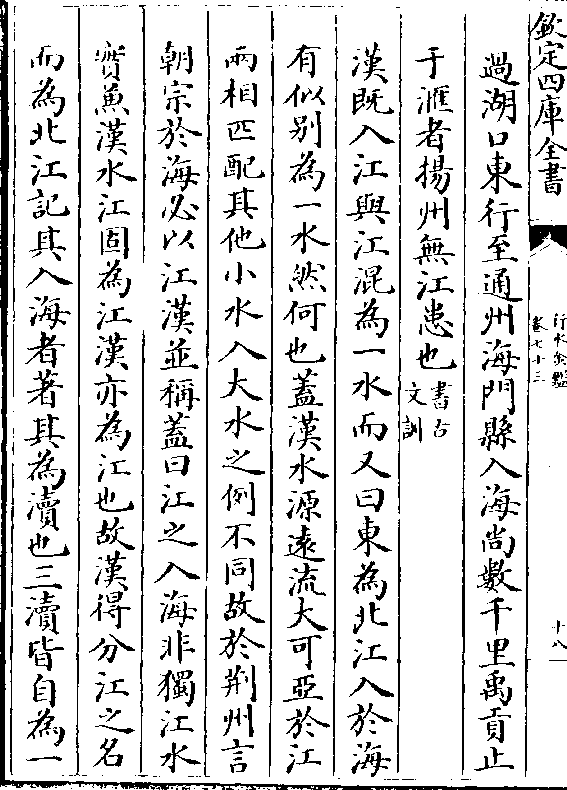 欽定四庫全書
行水金鑑
卷七十三
十八
過湖口東行至通州海門縣入海尚數千里禹貢止
于滙者揚州無江患也書古文訓
漢既入江與江混為一水而又曰東為北江入於海
有似别為一水然何也蓋漢水源遠流大可亞於江
兩相匹配其他小水入大水之例不同故於荆州言
朝宗於海必以江漢並稱蓋曰江之入海非獨江水
實兼漢水江固為江漢亦為江也故漢得分江之名
而為北江記其入海者著其為瀆也三瀆皆自為一